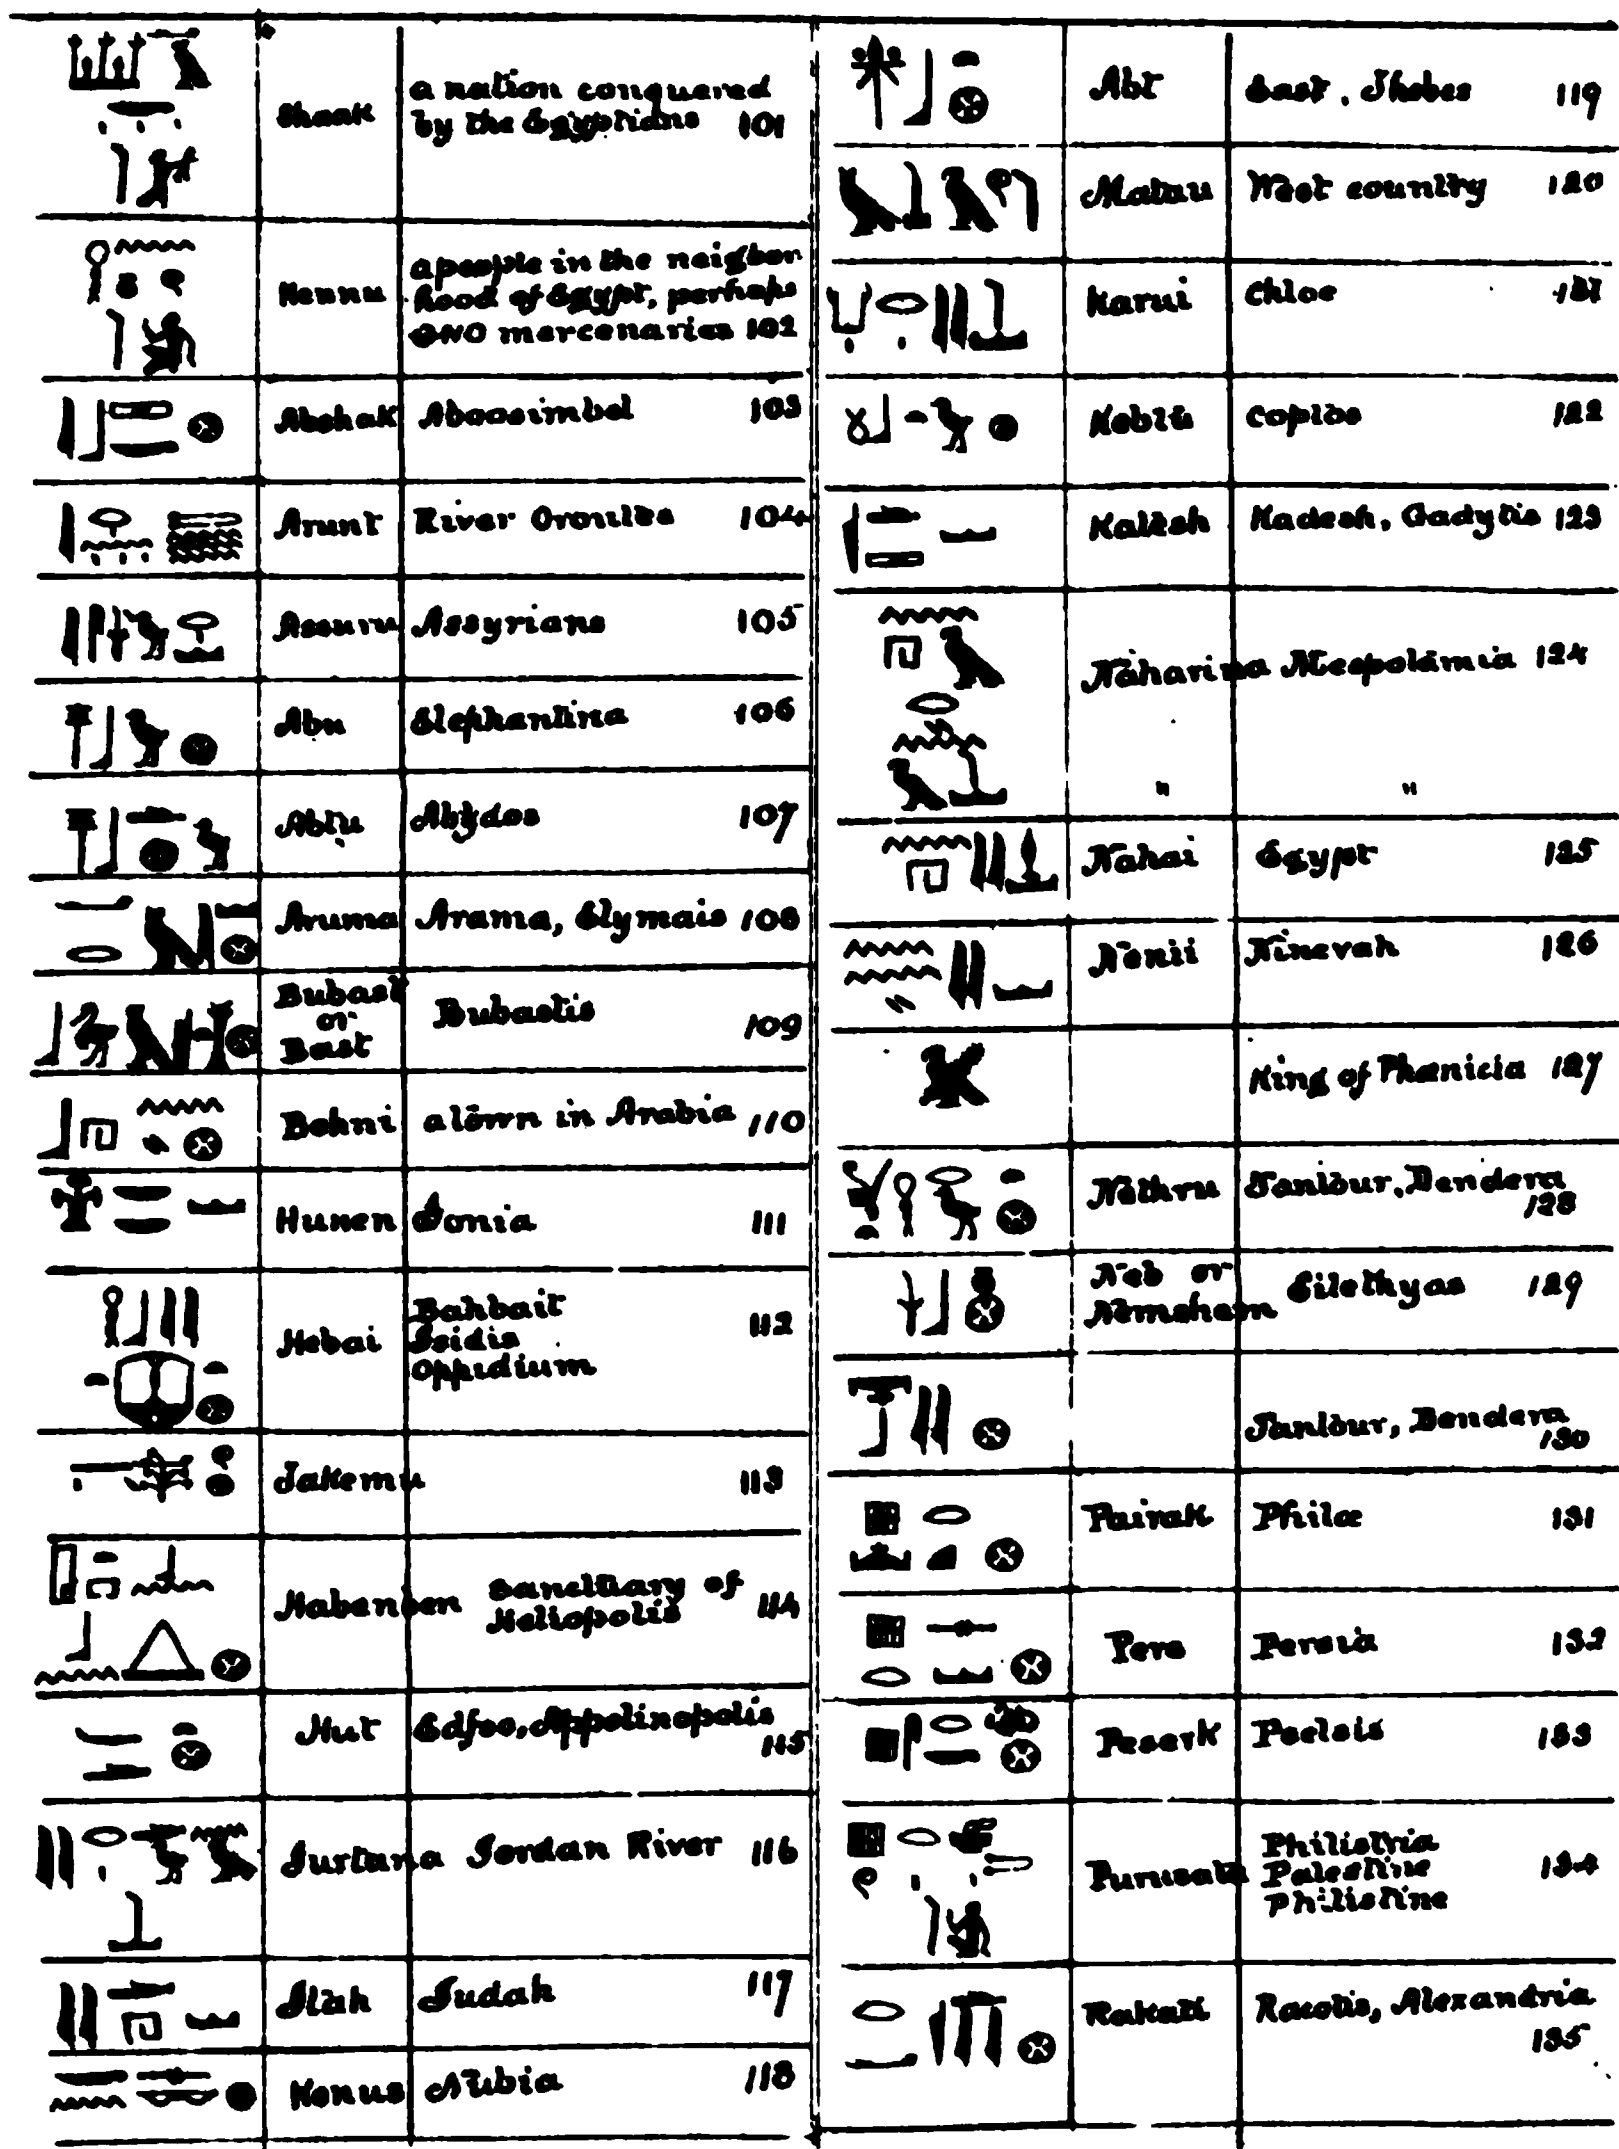 Shaak a nation conquered
by the Egyptians 101
Hennu a people in the neighbor
hood of Egypt, perhaps
ONO mercenaries 102
Abshak Aboosimbel 103
Arunt River Orontes 104
Assuru Assyrians 105
Abu Elephantina 106
Abtu Abydos 107
Aruma Arama, Elymais 108
Bubast
or
Bast Bubastis 109
Behni a town in Arabia 110
Hunen Ionia 111
Hebai Bahbait
Isidis
Oppidium 112
Jakemu 113
Habenben Sanctuary of
Heliopolis 114
Hut Edfoo, Appolinopolis
115
Iurtana Jordan River 116
Itah Judah 117
Kenus Nubia 118
Abt East, Thebes 119
Matau West country 120
Karui Chloe 121
Kebtu Coptos 122
Katesh Kadesh, Cadytis 123
Naharina Mespotamia 124
" "
Nahai Egypt 125
Nenii Ninevah 126
King of Phœnicia 127
Nethru Tantour, Dendera
128
Neb or
Nemshem Eilethyas 129
Tantour, Dendera
130
Pairak Philœ 131
Pers Persia 132
Peserk Pselsis 133
Purusata Philistria
Palestine
Philistine 134
Rakati Racotis, Alexandria
135